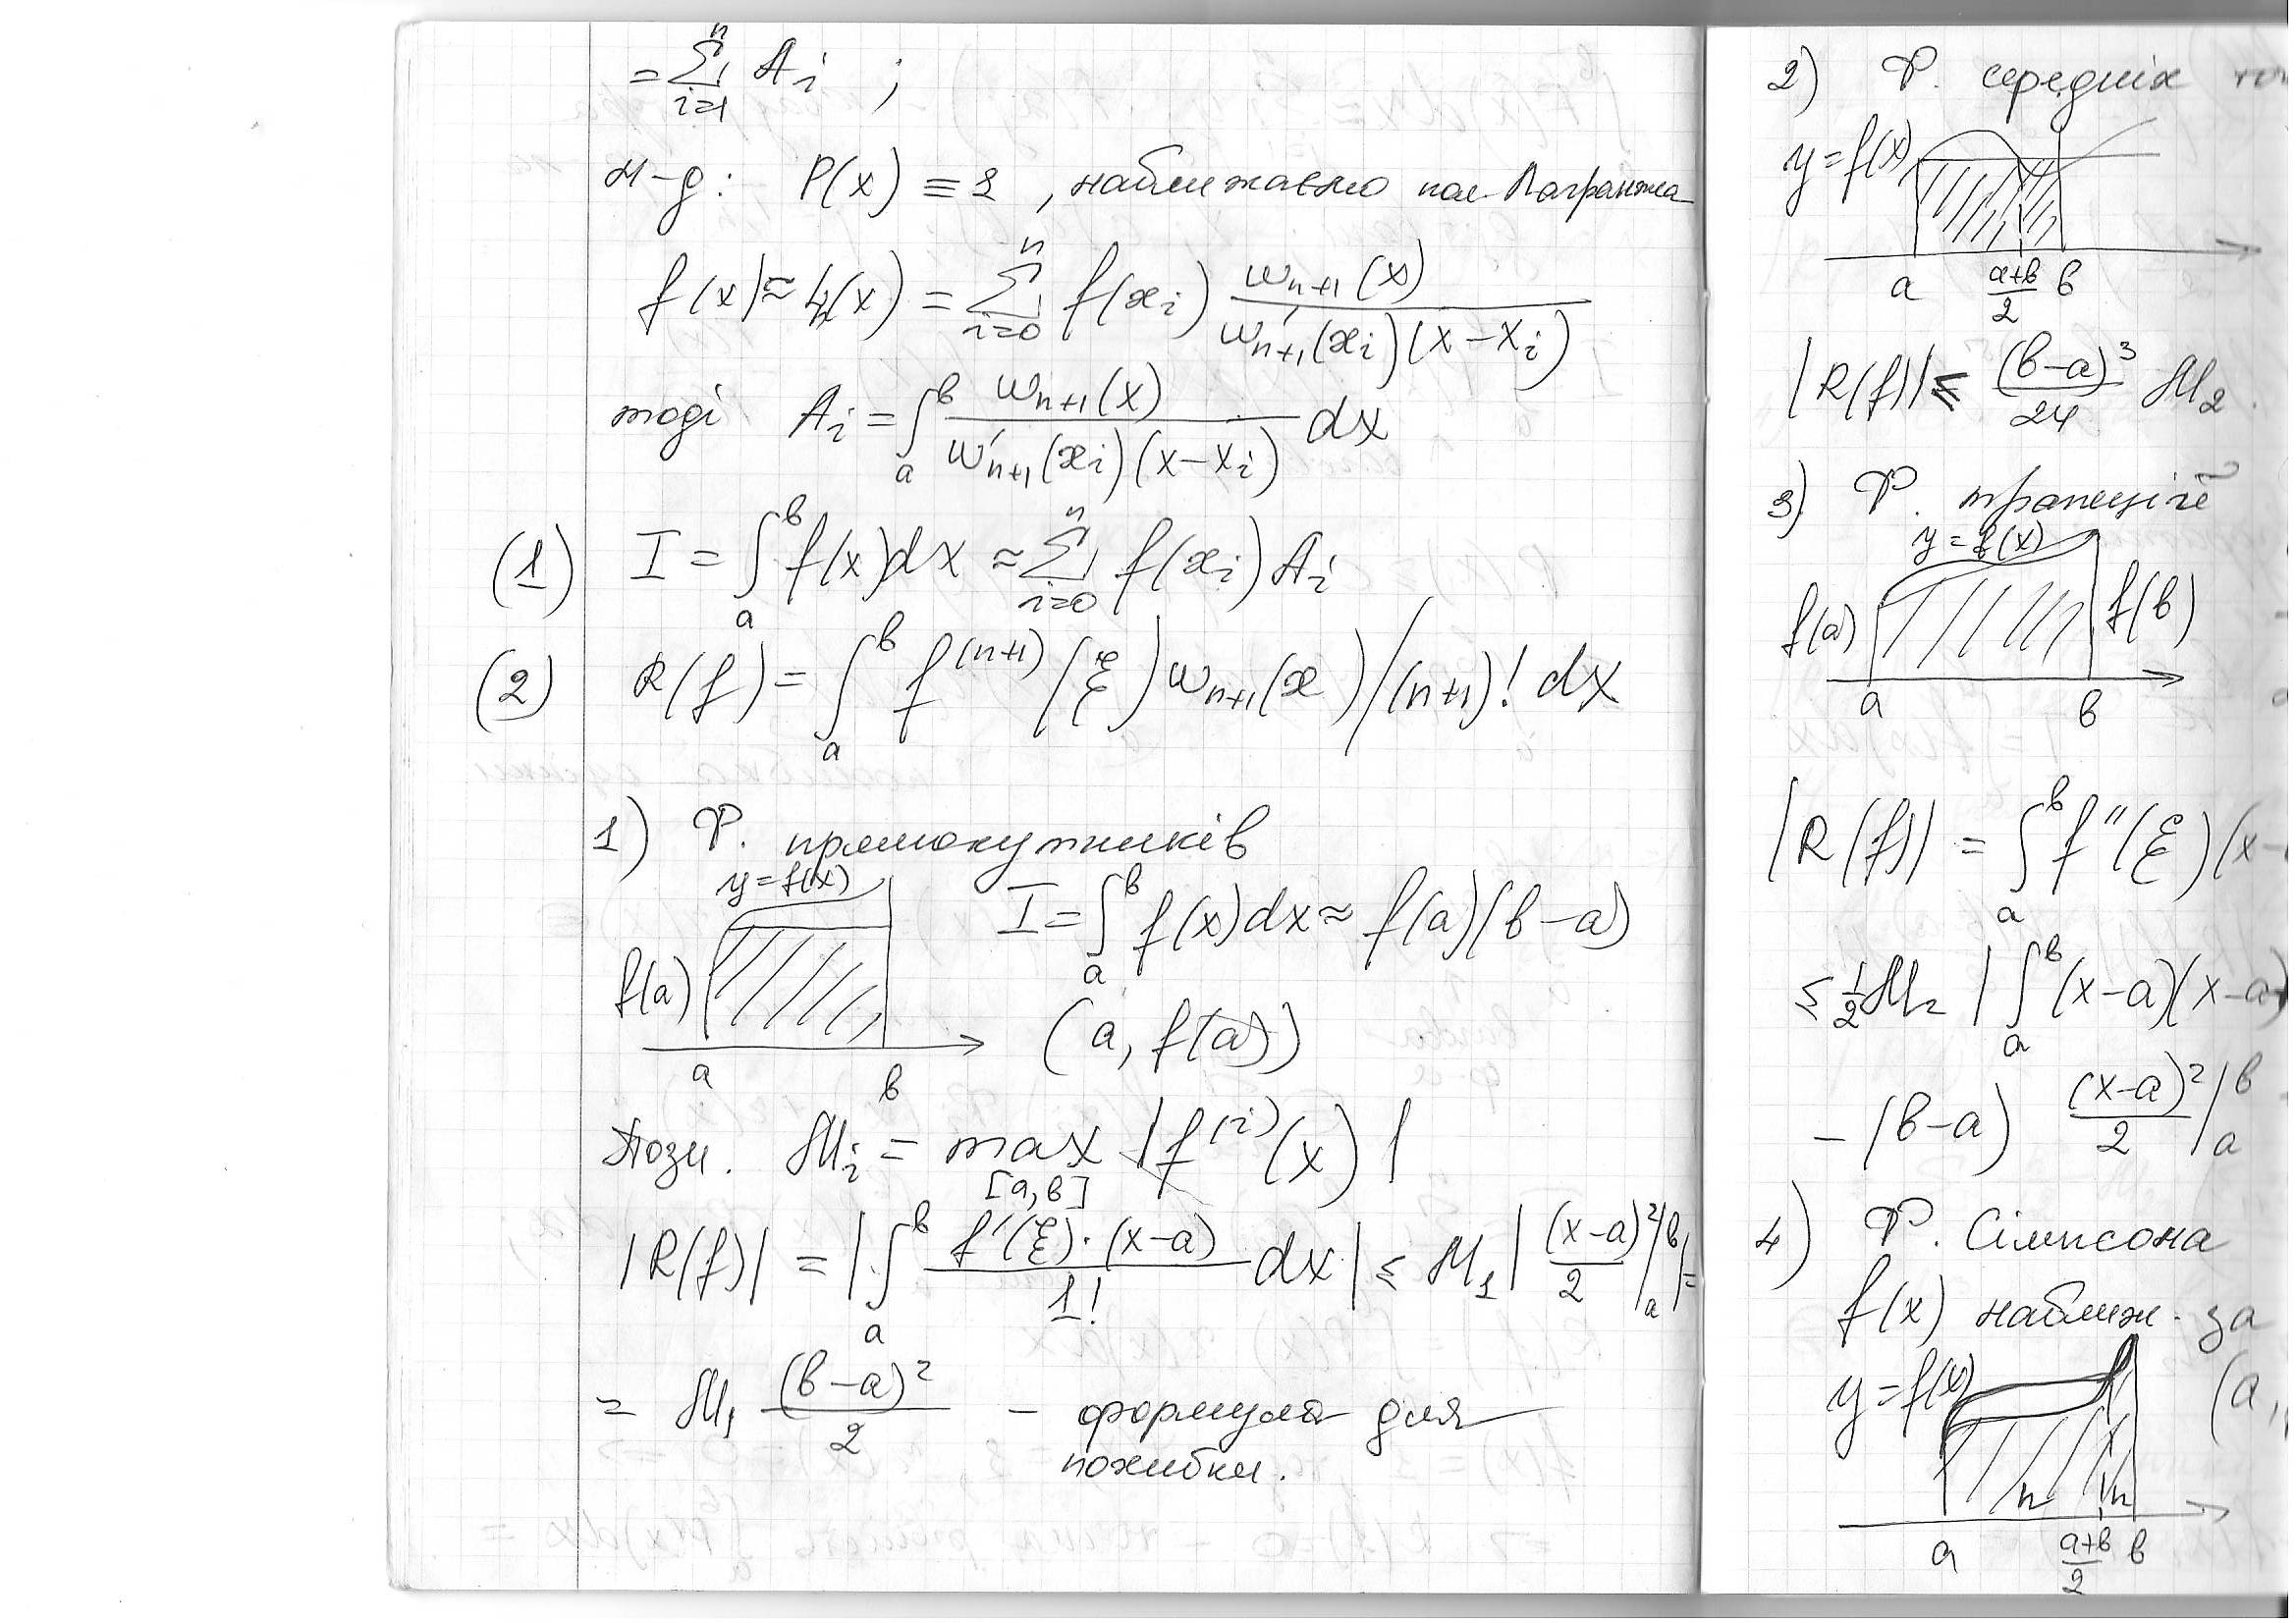 = ∑_{i=1}^{n} A_i ;
н-д: P(x) ≡ 1, наближаємо пол. Лагранжа
f(x) ≈ L_n(x) = ∑_{i=0}^{n} f(x_i) ω_{n+1}(x) / (ω'_{n+1}(x_i)(x-x_i))
тоді A_i = ∫_a^b ω_{n+1}(x) / (ω'_{n+1}(x_i)(x-x_i)) dx
(1) I = ∫_a^b f(x)dx ≈ ∑_{i=0}^{n} f(x_i) A_i
(2) R(f) = ∫_a^b f^{(n+1)}(ξ) ω_{n+1}(x)/(n+1)! dx
1) Ф. прямокутників
y=f(x)
I = ∫_a^b f(x)dx ≈ f(a)(b-a)
f(a)
(a, f(a))
a b
Позн. M_i = max_{[a,b]} |f^{(i)}(x)|
|R(f)| = |∫_a^b f'(ξ)·(x-a) / 1! dx| ≤ M_1 |(x-a)²/2 |_a^b| =
= M_1 (b-a)²/2 - формула для
похибки.
2) Ф. середніх
y=f(x)
a (a+b)/2 b
|R(f)| ≤ (b-a)³/24 M_2.
3) Ф. трапецій
y=f(x)
f(a) f(b)
a b
|R(f)| = ∫_a^b f''(ξ)(x-
≤ 1/2 M_2 |∫_a^b (x-a)(x-a
- (b-a) (x-a)²/2 |_a^b
4) Ф. Сімпсона
f(x) наближ. за
y=f(x) (a,
a (a+b)/2 b